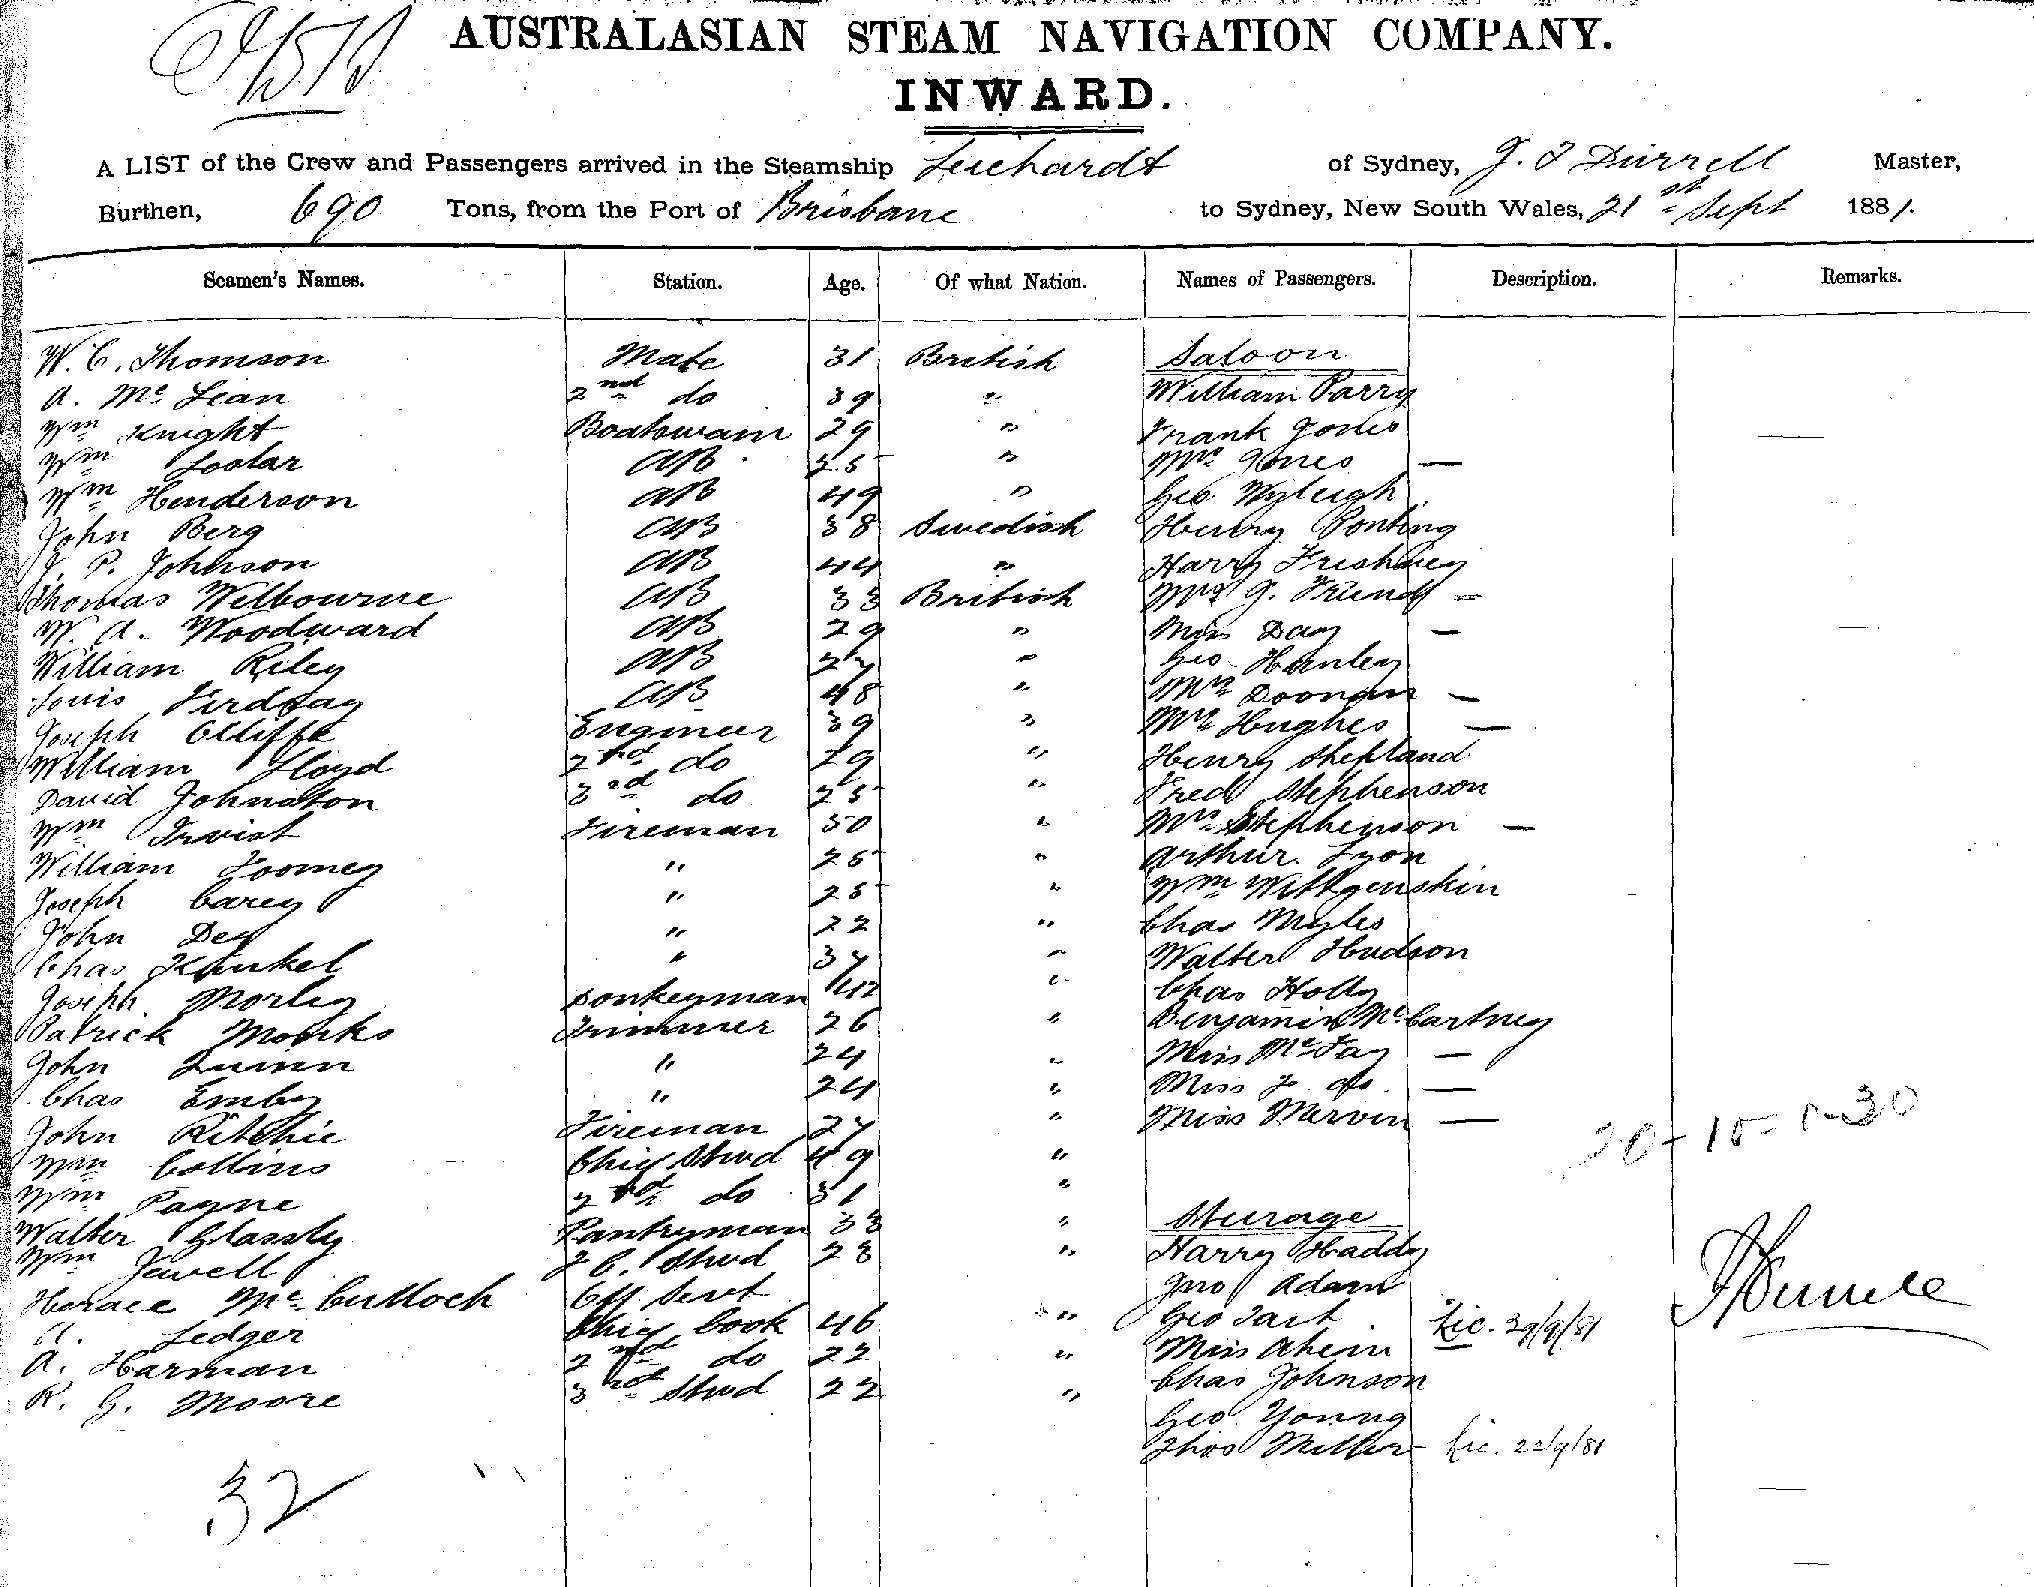 AUSTRALASIAN STEAM NAVIGATION COMPANY.
INWARD.
A LIST of the Crew and Passengers arrived in the Steamship Leichardt of Sydney, J. T Durrell Master,
Burthen, 690 Tons, from the Port of Brisbane to Sydney, New South Wales, 21st Sept 1881.
Seamen's Names. Station. Age. Of what Nation. Names of Passengers. Description. Remarks.
W. C. Thomson Mate 31 British Saloon
A. Mc Lean 2nd do 39 " William Parry
Wm Knight Boatswain 29 " Frank Jones
Wm AB 25 " Mrs Jones —
Wm Henderson AB 49 " Geo. Wyleigh
John Berg AB 38 Swedish Henry Ponting
J. P. Johnson AB 44 " Harry Freshney
Thomas Welbourne AB 33 British Mrs J. Friend —
W. A. Woodward AB 29 " Miss Day —
William Riley AB 27 " Geo Hanley
Louis AB 48 " Mrs Doonan —
Joseph Olliffe Engineer 39 " Mrs Hughes —
William Lloyd 2nd do 29 " Henry Shepland
David Johnston 3rd do 25 " Fred Stephenson
Wm Fireman 50 " Mrs Stephenson —
William Toomey " 25 " Arthur Lyon
Joseph Carey " 25 " Wm Wittgenskin
John Dey " 22 " Chas Myles
Chas Kunkel " 37 " Walter Hudson
Joseph Morley Donkeyman 42 " Chas Holly
Patrick Monks Trimmer 26 " Benjamin Mc Cartney
John Quinn " 24 " Miss Mc Fay —
Chas Emby " 24 " Miss F. do. —
John Ritchie Fireman 27 " Miss Mervin —
Wm Collins Chief Stwd 49 "
Wm Payne 2nd do 31 "
Walter Glassby Pantryman 33 " Steerage
Wm Jewell 2 C. Stwd 23 " Harry Haddy
Horace Mc Culloch Off Servt Jno Adam
A. Ledger Chief Cook 46 " Geo Tart Lic. 29/9/81
A. Harman 2nd do 22 " Miss Ahern
R. G. Moore 3rd Stwd 22 " Chas Johnson
Geo. Young
Thos Miller Lic. 22/9/81
32